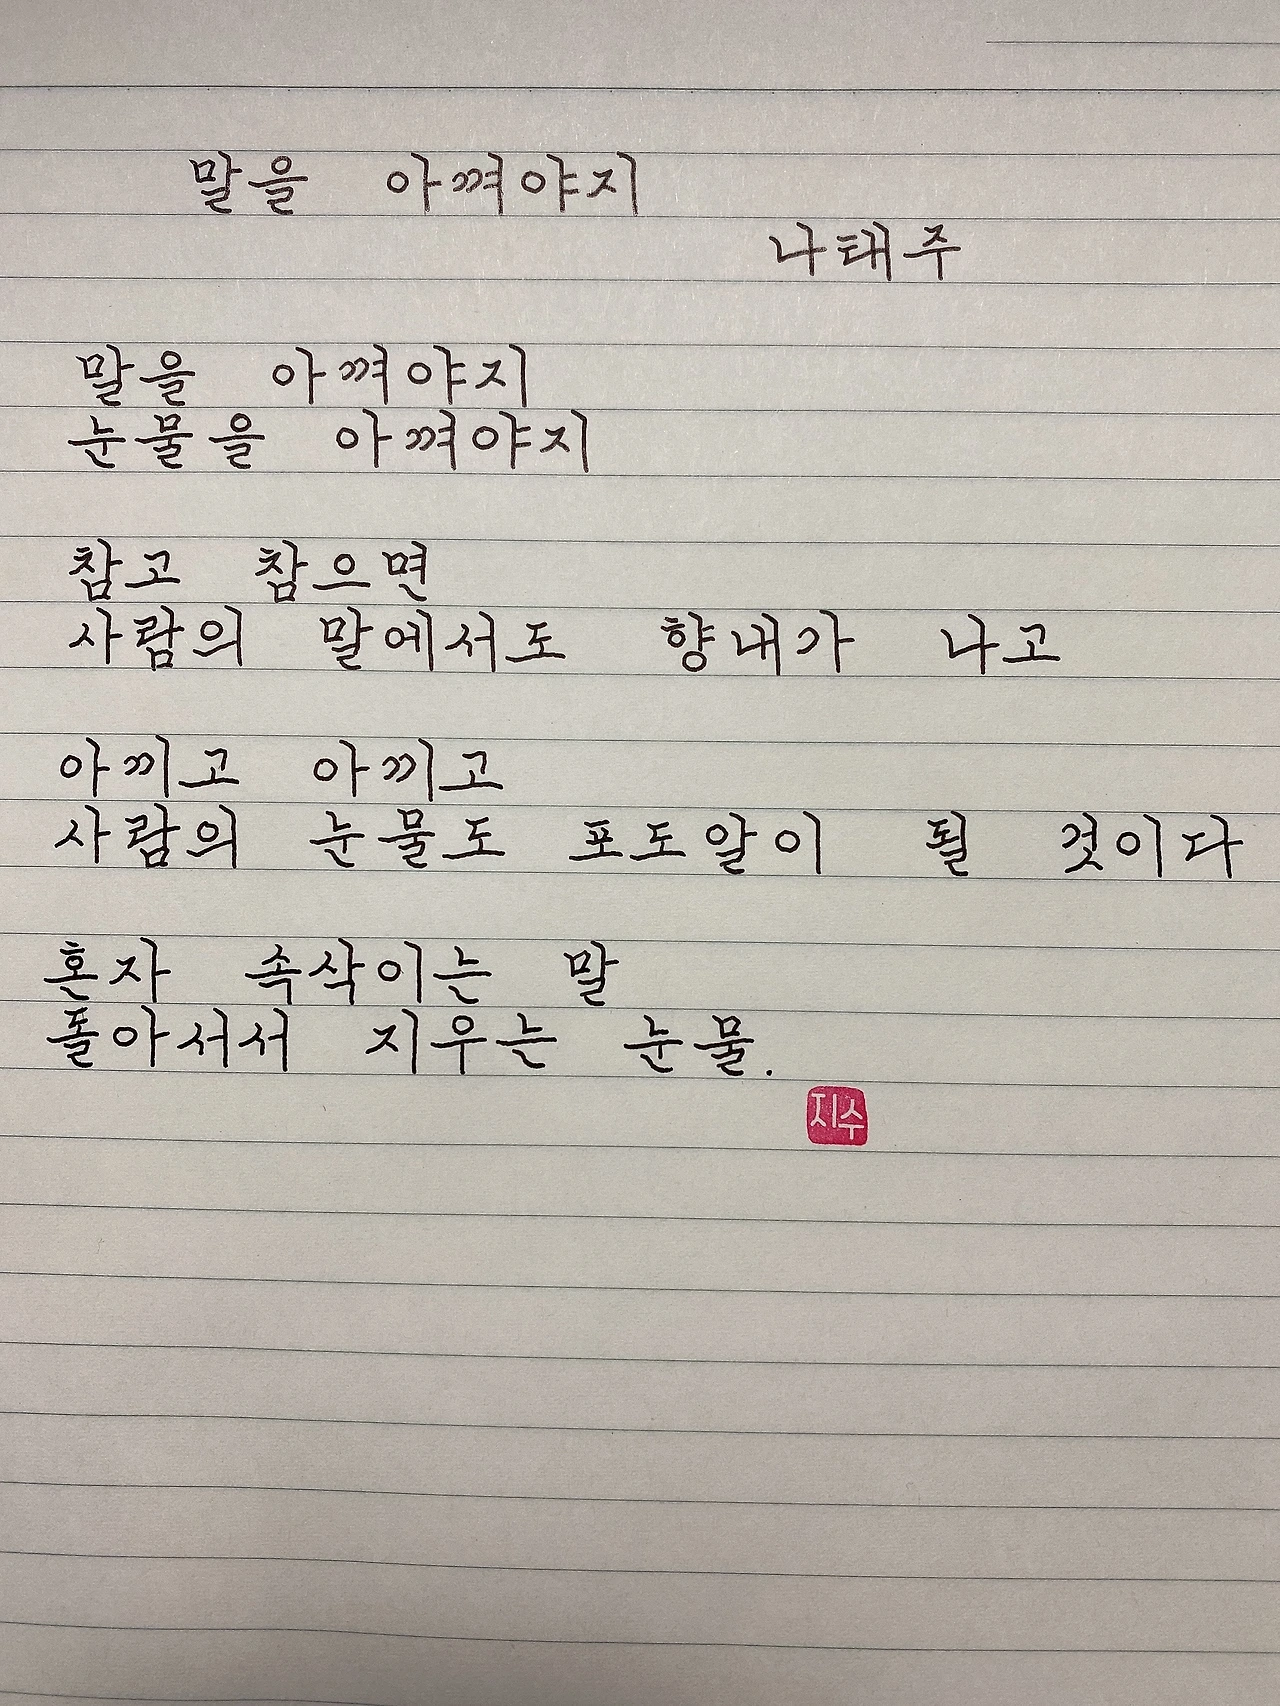 말을 아껴야지
나태주
말을 아껴야지
눈물을 아껴야지
참고 참으면
사람의 말에서도 향내가 나고
아끼고 아끼고
사람의 눈물도 포도알이 될 것이다
혼자 속삭이는 말
돌아서서 지우는 눈물.
지수